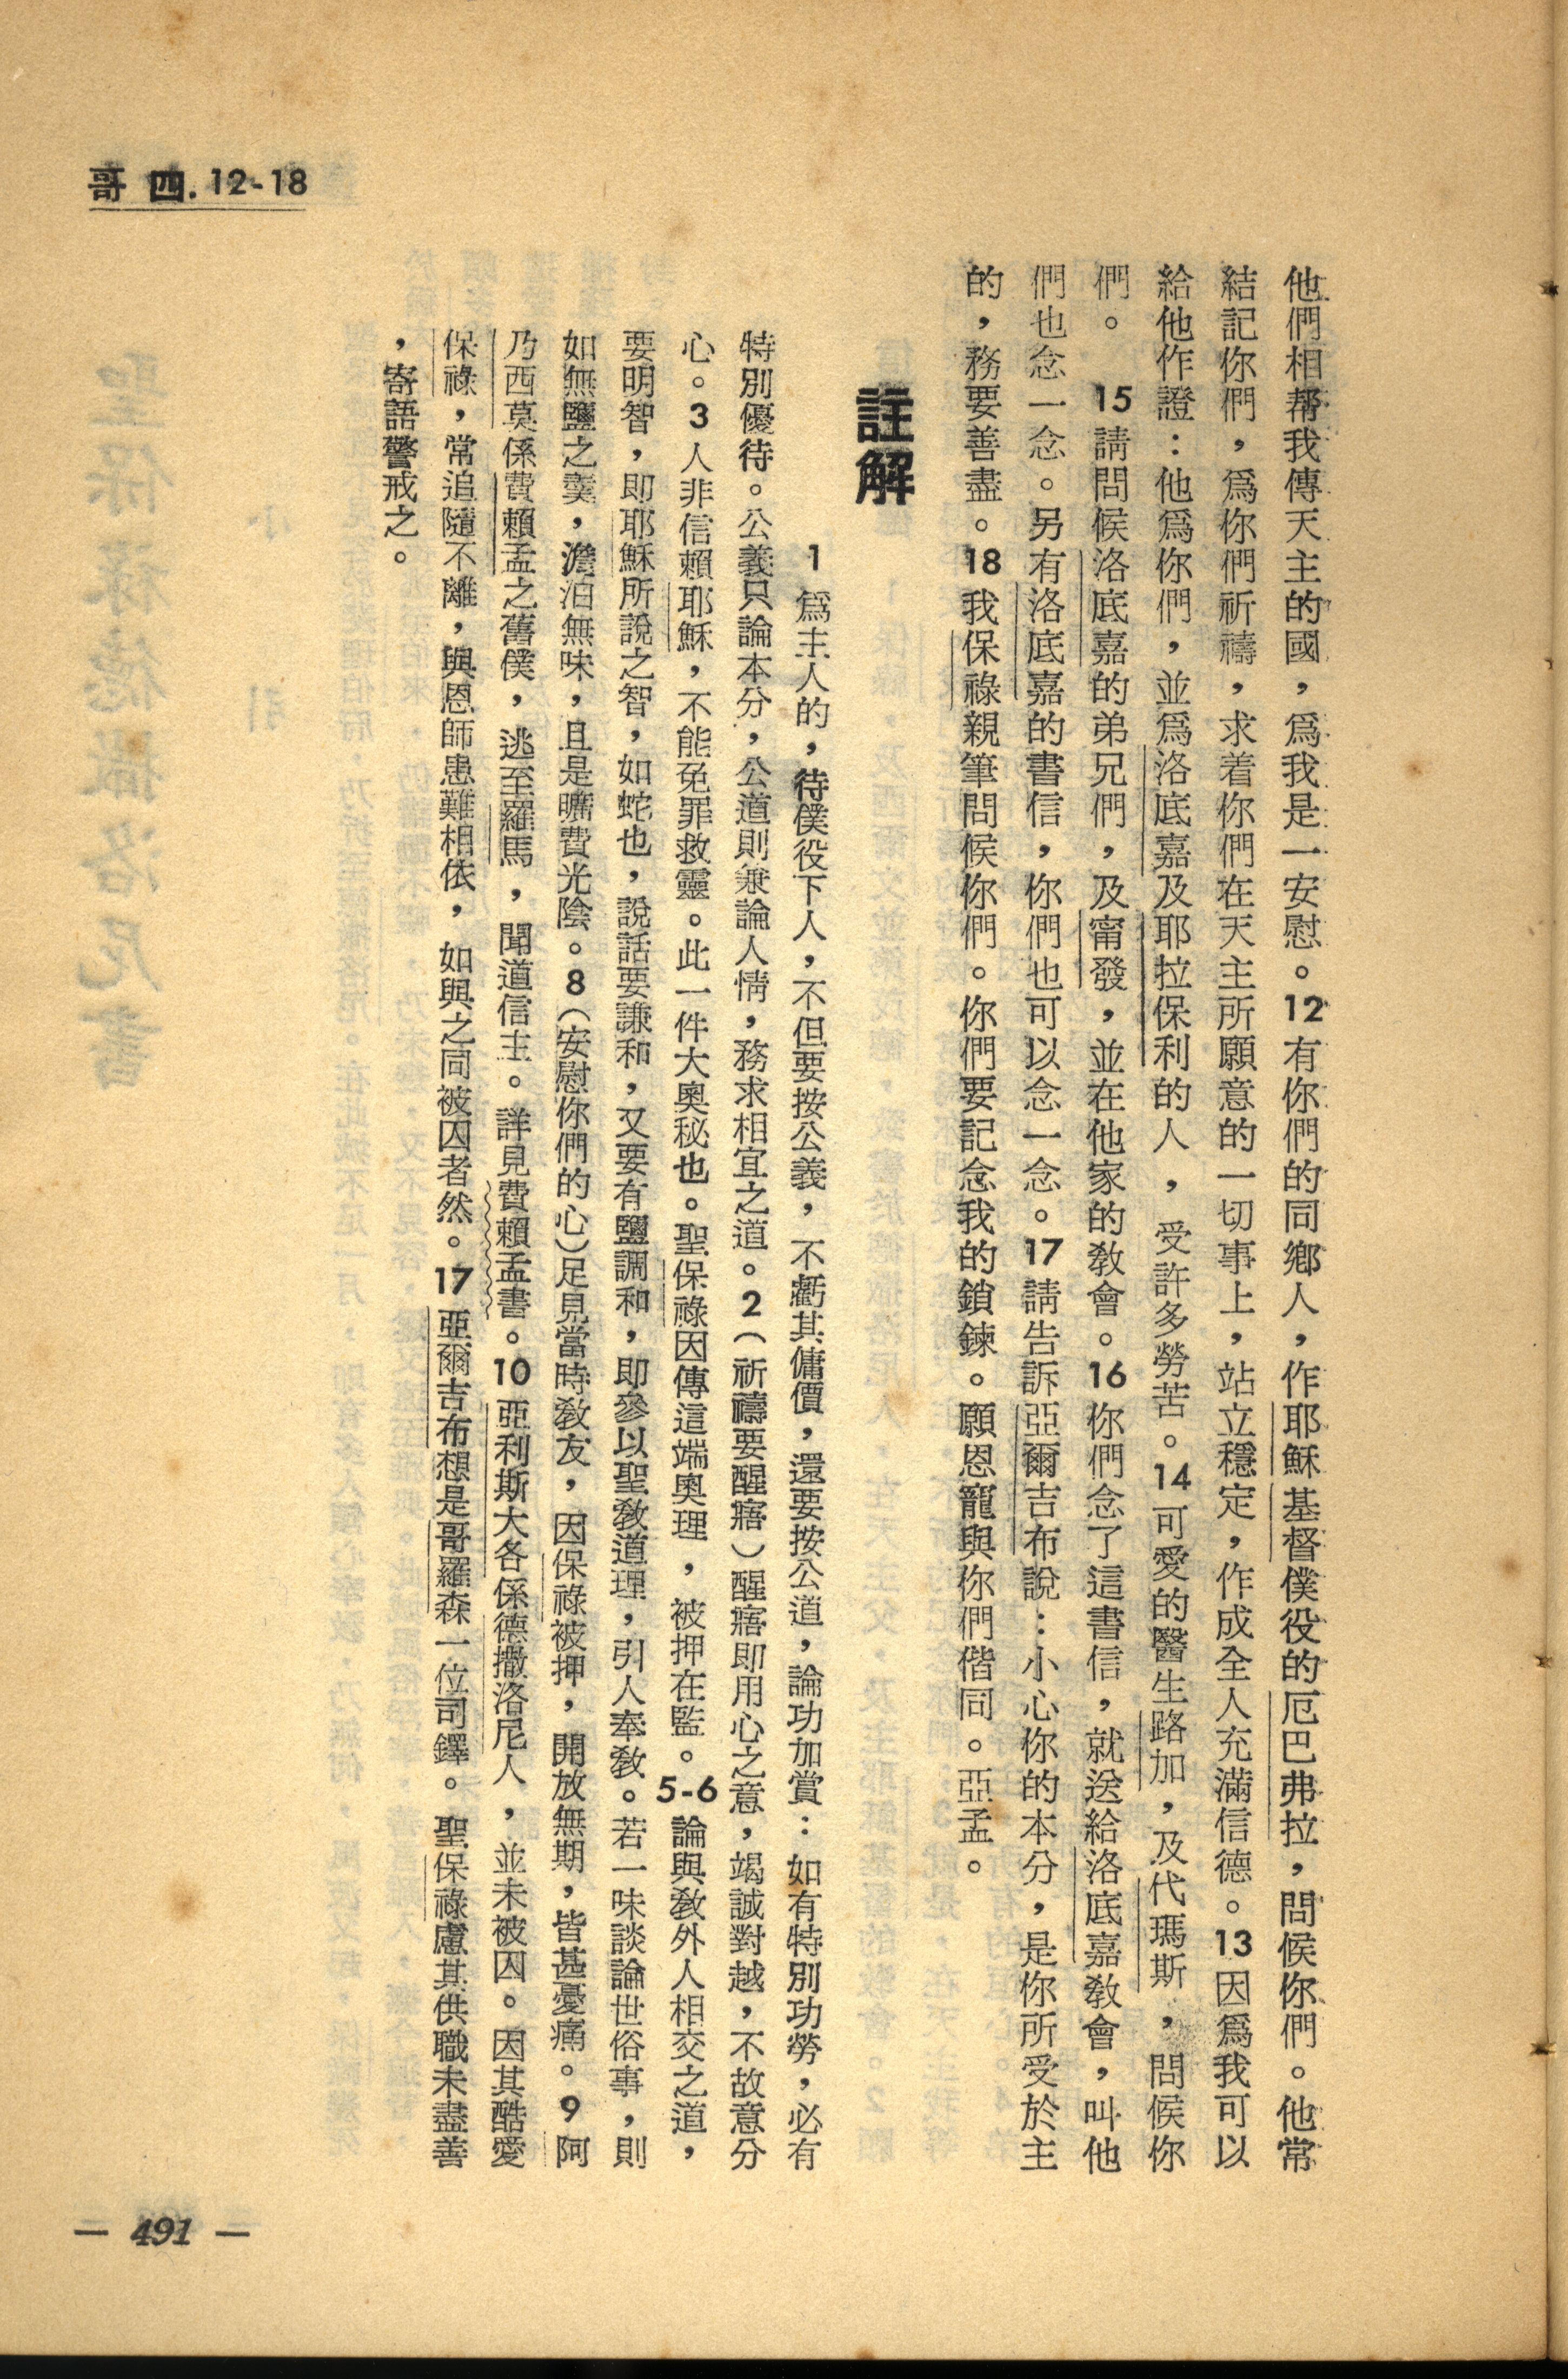 哥 四. 12-18
他們相幫我傳天主的國，爲我是一安慰。12有你們的同鄉人，作耶穌基督僕役的厄巴弗拉，問候你們。他常
結記你們，爲你們祈禱，求着你們在天主所願意的一切事上，站立穩定，作成全人充滿信德。13因爲我可以
給他作證：他爲你們，並爲洛底嘉及耶拉保利的人，受許多勞苦。14可愛的醫生路加，及代瑪斯，問候你
們。15請問候洛底嘉的弟兄們，及甯發，並在他家的敎會。16你們念了這書信，就送給洛底嘉敎會，叫他
們也念一念。另有洛底嘉的書信，你們也可以念一念。17請告訴亞爾吉布說：小心你的本分，是你所受於主
的，務要善盡。18我保祿親筆問候你們。你們要記念我的鎖鍊。願恩寵與你們偕同。亞孟。
註解
1 爲主人的，待僕役下人，不但要按公義，不虧其傭價，還要按公道，論功加賞：如有特別功勞，必有
特別優待。公義只論本分，公道則兼論人情，務求相宜之道。2（祈禱要醒寤）醒寤即用心之意，竭誠對越，不故意分
心。3人非信賴耶穌，不能免罪救靈。此一件大奧秘也。聖保祿因傳這端奧理，被押在監。5-6論與敎外人相交之道，
要明智，即耶穌所說之智，如蛇也，說話要謙和，又要有鹽調和，即參以聖敎道理，引人奉敎。若一味談論世俗事，則
如無鹽之羹，澹泊無味，且是曠費光陰。8（安慰你們的心）足見當時敎友，因保祿被押，開放無期，皆甚憂痛。9阿
乃西莫係費賴孟之舊僕，逃至羅馬，聞道信主。詳見費賴孟書。10亞利斯大各係德撒洛尼人，並未被囚。因其酷愛
保祿，常追隨不離，與恩師患難相依，如與之同被囚者然。17亞爾吉布想是哥羅森一位司鐸。聖保祿慮其供職未盡善
，寄語警戒之。
— 491 —